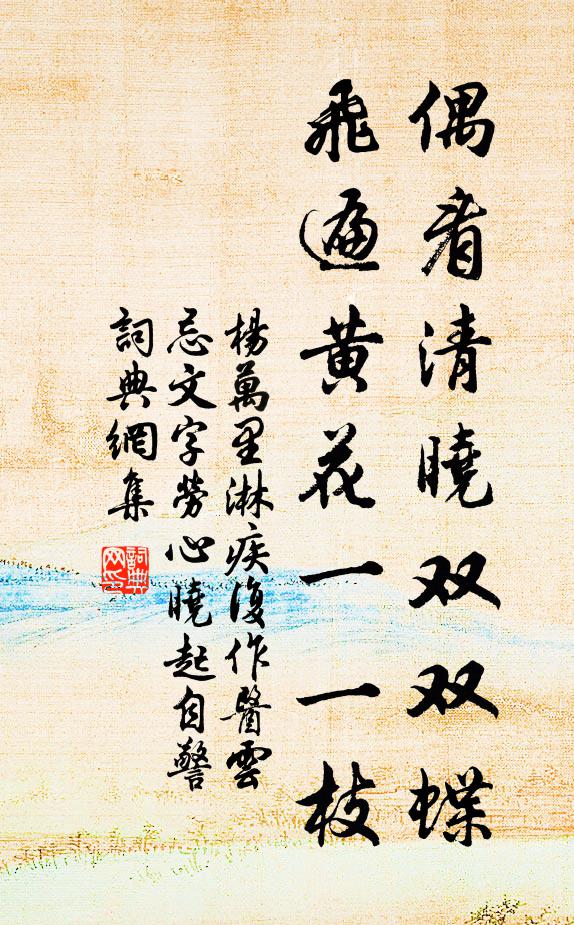 偶看清曉双双蝶
飛遍黄花一一枝
楊萬里淋疾復作醫雲
忌文字勞心曉起自警
詞典網集
詞典
网